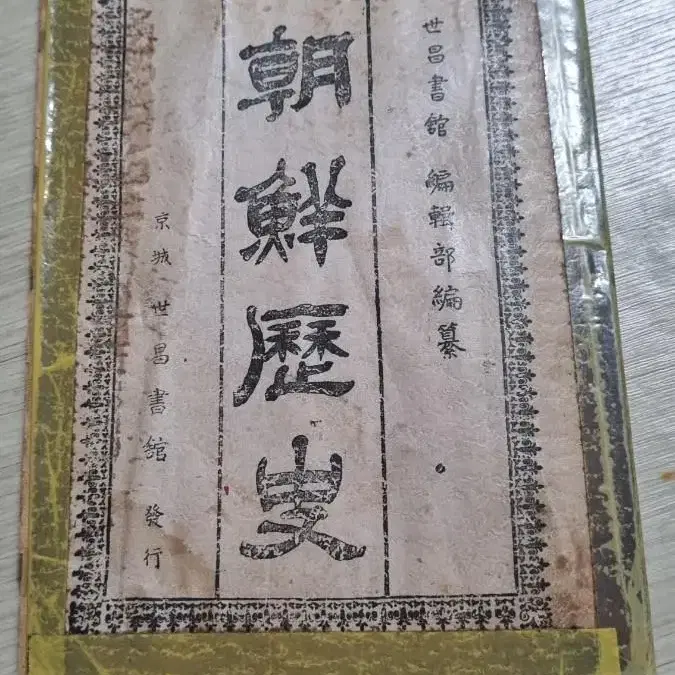 世昌書館 編輯部編纂
朝鮮歷史
京城 世昌書館 發行